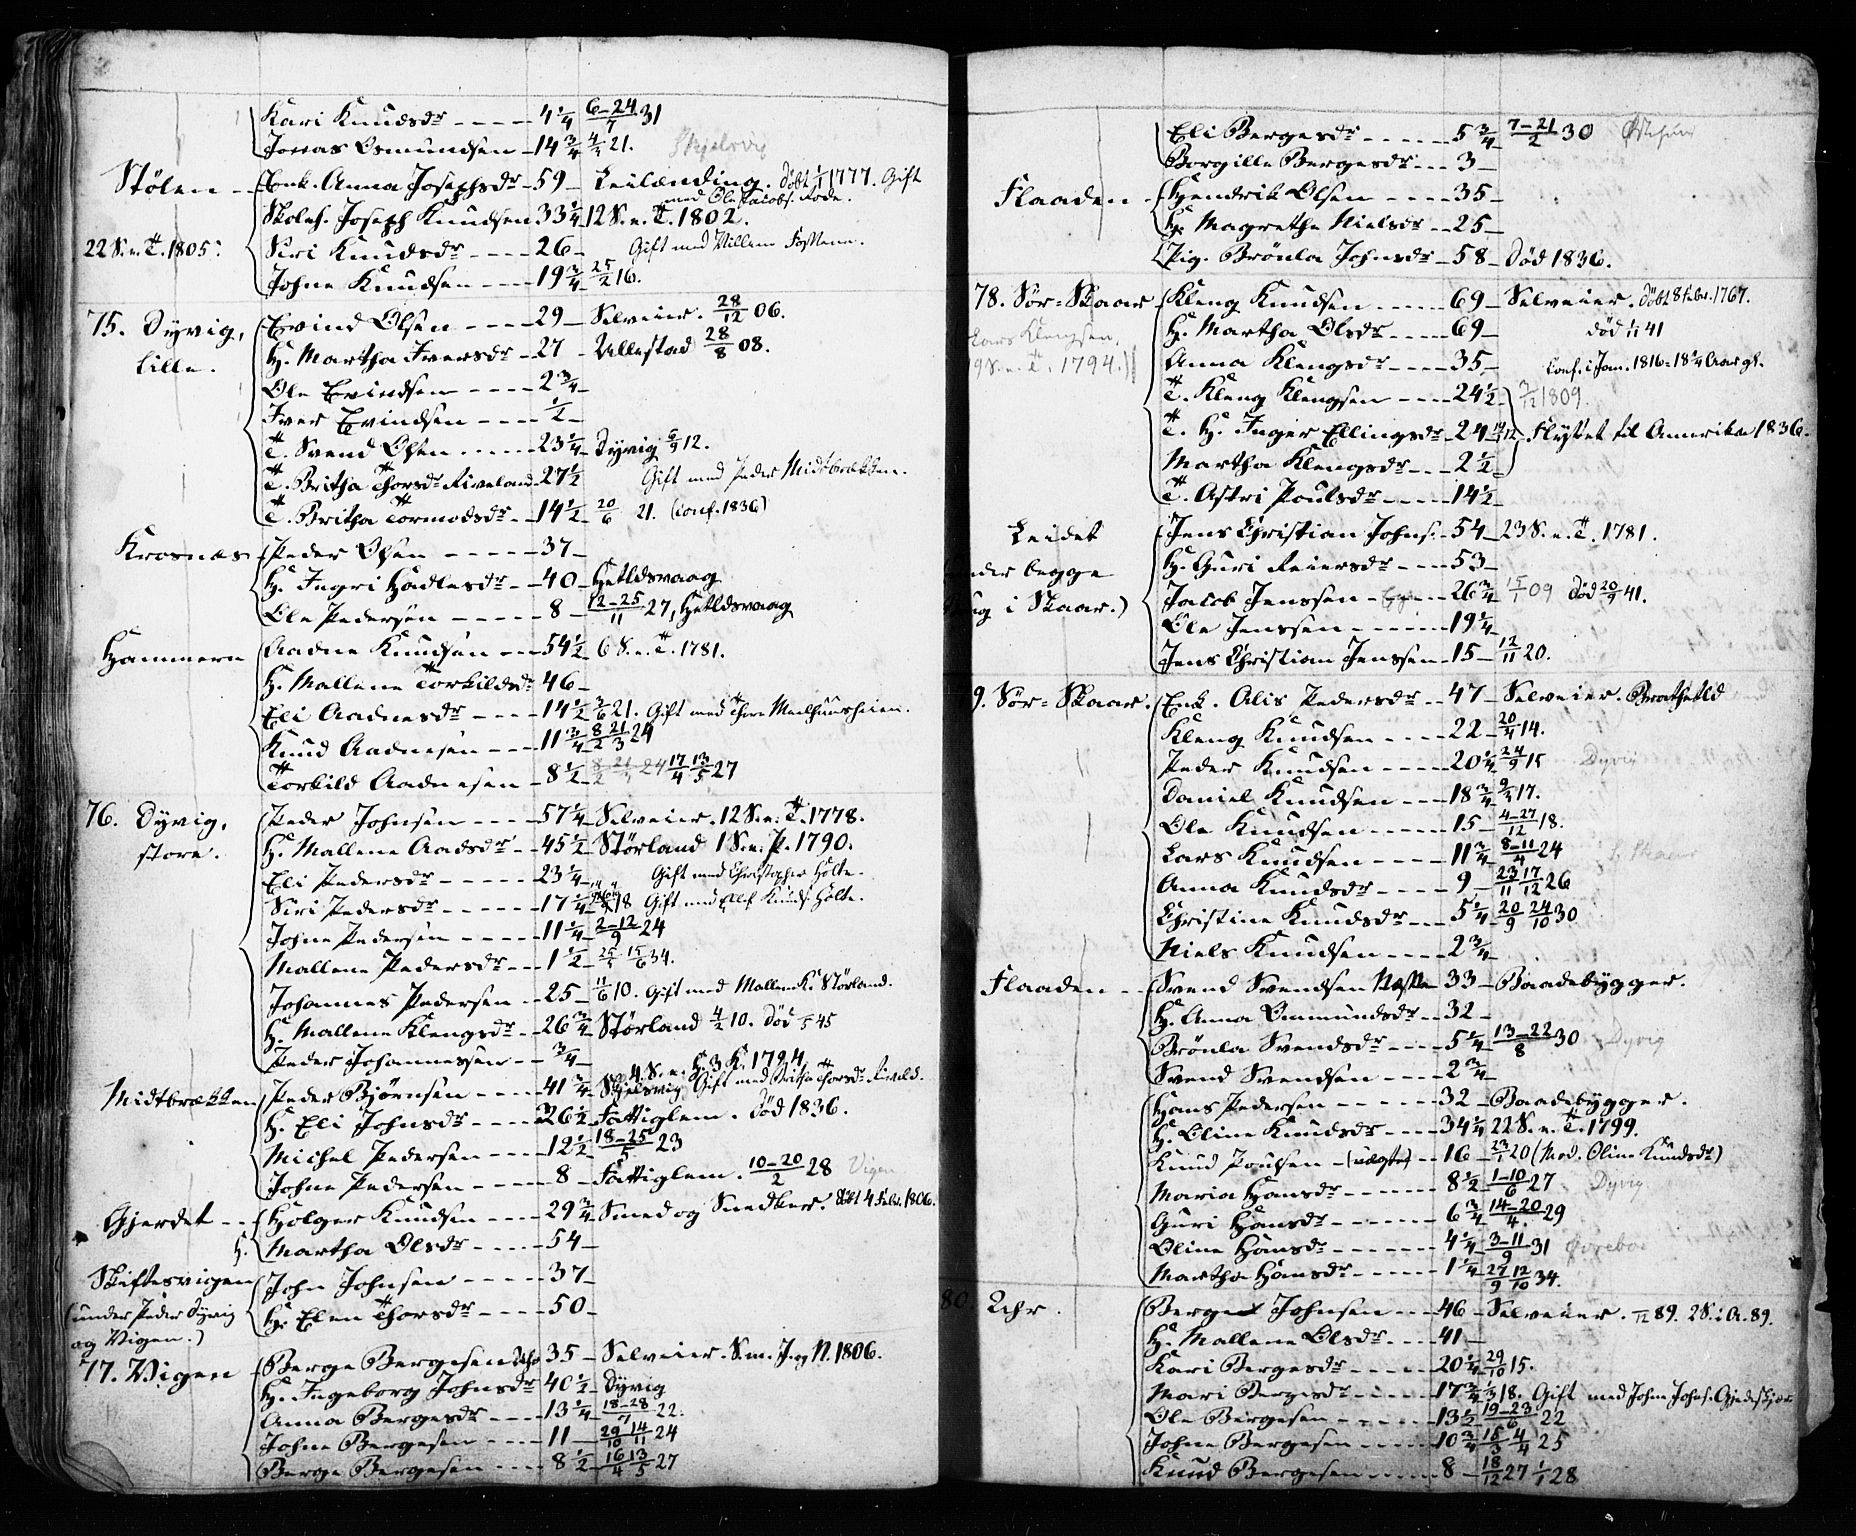 Kari Knudsdr 4 1/4 6-24/7 31
Jonas Osmundsen 14 3/4 21. Skjelsvig
Stølen Enk. Anna Josephsdr 59 Leilænding. Døbt 1/1 1777. Gift
med Ole Jacobs. Rode.
Skoleh. Joseph Knudsen 33 1/4 12 S. e. T. 1802.
22 S. e. T. 1805. Siri Knudsdr 26 Gift med Villem
Johne Knudsen 19 3/4 25/2 16.
75. Dyvig, Evind Olsen 29 Selveier. 28/12 06.
Lille. H. Martha Iversdr 27 Ullestad 28/8 08.
Ole Evindsen 2 3/4
Iver Evindsen 1/2
T. Svend Olsen 23 1/4 Dyvig 6/9 12.
T. Britha Thorsdr Riveland 27 1/2 Gift med Peder Midtbrækken.
T. Britha Tormodsdr 14 1/2 20/6 21. (Conf. 1836)
Krosnæs Peder Olsen 37
H. Ingri Hadlesdr 40 Hetldsvaag
Ole Pedersen 8 12-25/11 27, Hetldsvaag
Hammern Aadne Knudsen 54 1/2 6 S. e. T. 1781.
H. Mallene Torkildsdr 46
Eli Aadnesdr 14 1/2 3/6 21. Gift med Thore Meelhuusheien.
Knud Aadnesen 11 3/4 8/2 21/3 24
Torkild Aadnesen 8 1/2 8/2 21/3 24 17/4 13/5 27
76. Dyvig, Peder Johnsen 57 1/4 Selveier. 12 S. e. T. 1778.
store. H. Mallene Aadsdr 45 1/2 Størland 1 S. e. P. 1790.
Eli Pedersdr 23 1/4 Gift med Christopher Holte.
Siri Pedersdr 17 1/4 18 Gift med Knuds. Holte.
Johne Pedersen 11 1/4 2-12/9 24
Mallene Pedersdr 1 1/2 25/5 15/6 34.
Johannes Pedersen 25 11/6 10. Gift med Mallene K. Størland.
H. Mallene Klengsdr 26 3/4 Størland 4/2 10. Død 45
Peder Johannessen 3/4
4 S. e. H. 3 K. 1794
Midtbrækken Peder Bjørnsen 41 3/4 Skjelsvig Gift med Britha Thorsdr Riveld.
H. Eli Johnsdr 26 1/2 Fattiglem. Død 1836.
Michel Pedersen 12 1/2 18-25/5 23
Johne Pedersen 8 Fattiglem. 10-20/2 28 Vigen
Gjerdet Holger Knudsen 29 3/4 Smed og Snedker. Døbt 4 Febr. 1806.
H. Martha Olsdr 54
Skiftesvigen John Johnsen 37
(under Peder Dyvig H. Elen Thorsdr 50
og Vigen.)
77. Vigen Berge Bergesen 35 Selveier. S. m. J. og N. 1806.
H. Ingeborg Johnsdr 40 1/2 Dyvig
Anna Bergesdr 13 1/4 18-28/7 22.
Johne Bergesen 11 29/10 14/11 24
Berge Bergesen 8 1/2 16/4 13/5 27
Eli Bergesdr 5 3/4 7-21/2 30
Borgille Bergesdr 3
Flaaden Hendrik Olsen 35
H. Magrethe Nielsdr 25
Pig. Brönla Johnsdr 58 Død 1836.
78. Sör-Skaar Kleng Knudsen 69 Selveier. Døbt 8 Febr. 1767.
Lars Klengsen, H. Martha Olsdr 69 død 1/11 41
9 S. e. T. 1794.) Anna Klengsdr 35 Conf. i Jan. 1816 - 18 3/4 Aar gl.
T. Kleng Klengsen 24 1/2 3/12 1809.
T. H. Inger Ellingsdr 24 12 Flyttet til Annerika 1836.
Martha Klengsdr 2 1/2
T. Astri Poulsdr 14 1/2
Leidet Jens Christian Johns. 54 23 S. e. T. 1781.
under begge H. Guri Reiersdr 53
Brug i Skaar.) Jacob Jenssen 26 3/4 15/1 09 Død 20/9 41.
Ole Jenssen 19 1/4
Jens Christian Jenssen 15 12/11 20.
9. Sör-Skaar. Enk. Alis Pedersdr 47 Selveier. Brathetld
Kleng Knudsen 22 20/4 14.
Peder Knudsen 20 1/4 24/9 15 Dyvig
Daniel Knudsen 18 3/4 9/3 17.
Ole Knudsen 15 4-27/12 18.
Lars Knudsen 11 3/4 8-11/4 24
Anna Knudsdr 9 23/11 17/12 26
Christine Knudsdr 5 1/4 20/9 24/10 30
Niels Knudsen 2 3/4
Flaaden Svend Svendsen 33 Baadebygger.
H. Anna Ommundsdr 32
Brönla Svendsdr 5 1/4 13-22/8 30 Dyvig
Svend Svendsen 2 3/4
Hans Pedersen 32 Baadebygger.
H. Oline Knudsdr 34 1/4 22 S. e. T. 1799.
Knud Poulsen (uægte) 16 23/1 20 (Mod. Oline Knudsdr)
Maria Hansdr 8 1/2 1-10/6 27 Dyvig
Guri Hansdr 6 3/4 14-20/4 29
Oline Hansdr 4 1/4 3-11/9 31
Martha Hansdr 1 1/4 27/9 12/10 34.
80. Uhr. Berge Johnsen 46 Selveier. /12 89. 2 S. i A. 89.
H. Mallene Olsdr 41
Kari Bergesdr 20 1/4 29/10 15.
Mari Bergesdr 17 3/4 1/3 18. Gift med Johne Johns. Gjedeskjær
Ole Bergesen 13 1/2 19-23/6 22
Johne Bergesen 10 3/4 15/3 4/4 25
Knud Bergesen 8 18/12 27 1/1 28